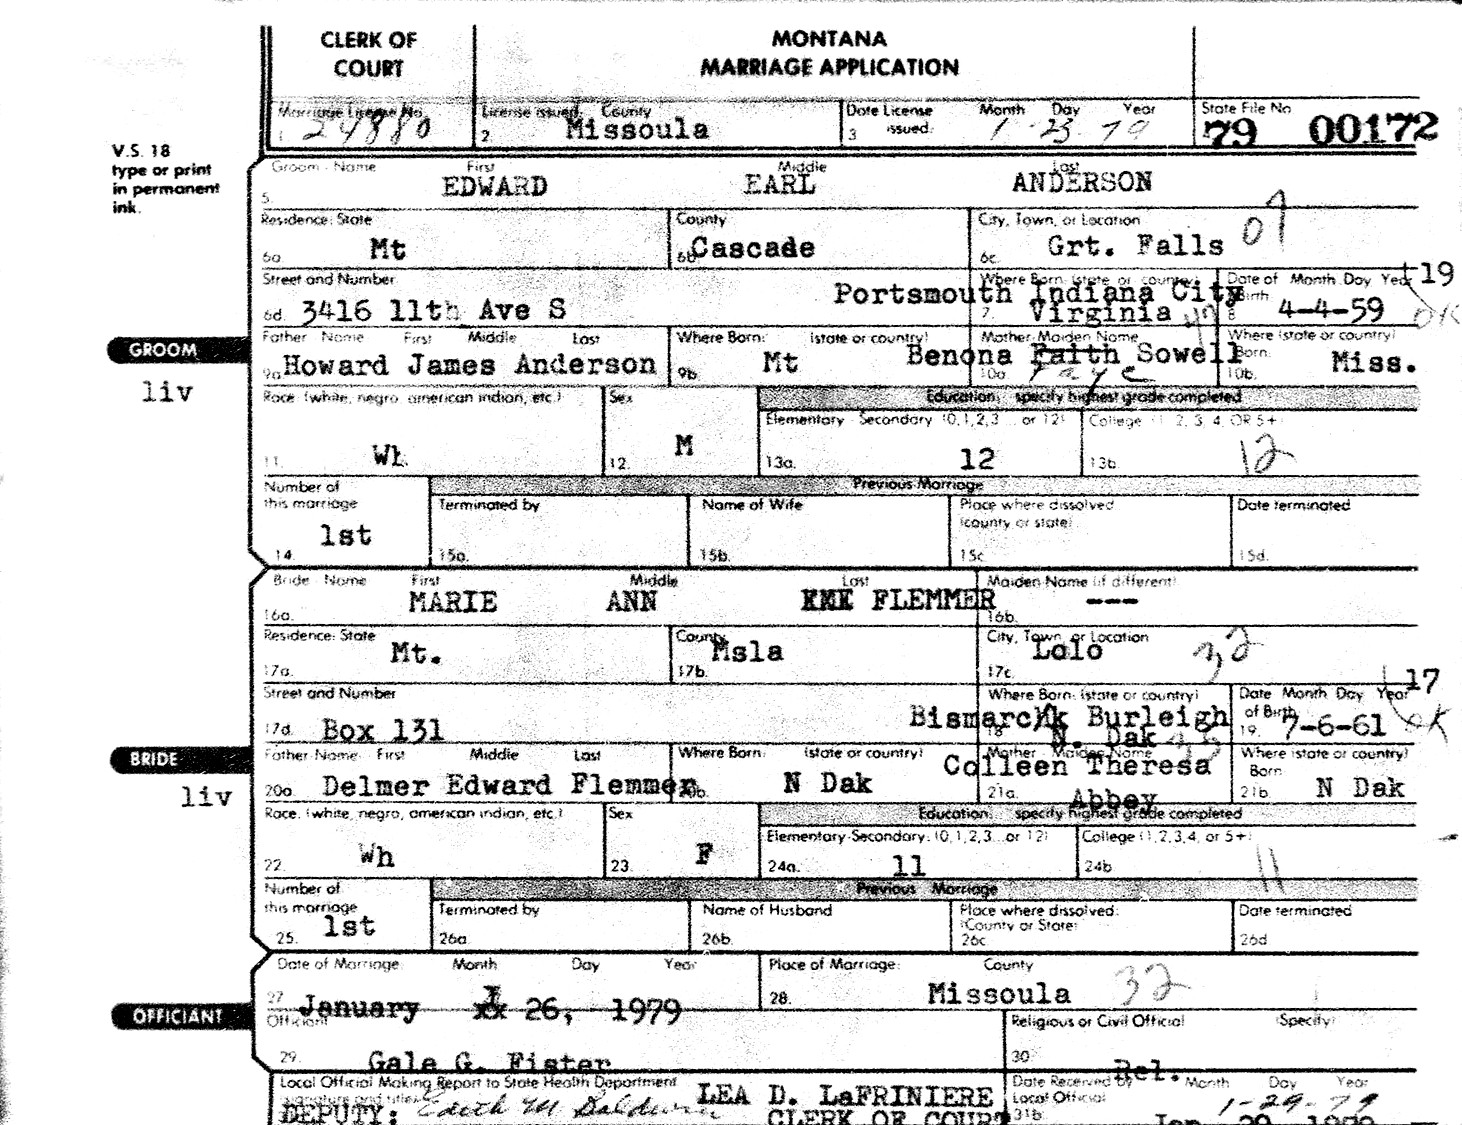 CLERK OF COURT
MONTANA MARRIAGE APPLICATION
Marriage License No. 1. 24880
License issued: County 2. Missoula
Date License issued: 3 Month Day Year 1-23-79
State File No 79 00172
V.S. 18
type or print
in permanent
ink.
Groom - Name First Middle Last
5. EDWARD EARL ANDERSON
Residence: State 6a. Mt
County 6b. Cascade
City, Town, or Location 6c. Grt. Falls 07
Street and Number 6d. 3416 11th Ave S
Where Born: (state or country) 7. Portsmouth Indiana City Virginia
Date of Birth Month Day Year 8 4-4-59 19 OK
GROOM
liv
Father Name First Middle Last 9a Howard James Anderson
Where Born: (state or country) 9b. Mt
Mother-Maiden Name 10a Benona Faith Sowell Faye
Where (state or country) Born: 10b. Miss.
Race: (white, negro, american indian, etc.) 11. Wh
Sex 12. M
Education: specify highest grade completed
Elementary - Secondary (0,1,2,3... or 12) 13a. 12
College (1, 2, 3, 4, OR 5+) 13b. 12
Number of this marriage 14. 1st
Previous Marriage
Terminated by 15a.
Name of Wife 15b.
Place where dissolved: (county or state) 15c
Date terminated 15d.
Bride - Name First Middle Last 16a. MARIE ANN FLEMMER
Maiden Name (if different) 16b. ---
Residence: State 17a. Mt.
County 17b. Msla
City, Town, or Location 17c. Lolo 32
Street and Number 17d. Box 131
Where Born: (state or country) 18 Bismarck Burleigh N. Dak
Date of Birth Month Day Year 19. 7-6-61 17 OK
BRIDE
liv
Father-Name: First Middle Last 20a. Delmer Edward Flemmer
Where Born: (state or country) 20b. N Dak
Mother Maiden Name 21a. Colleen Theresa Abbey
Where (state or country) Born 21b. N Dak
Race: (white, negro, american indian, etc.) 22. Wh
Sex 23. F
Education: specify highest grade completed
Elementary-Secondary: (0,1,2,3...or 12) 24a. 11
College (1,2,3,4, or 5+) 24b 11
Number of this marriage 25. 1st
Previous Marriage
Terminated by 26a
Name of Husband 26b.
Place where dissolved: (County or State) 26c
Date terminated 26d
Date of Marriage: Month Day Year 27 January 26, 1979
Place of Marriage: County 28. Missoula 32
OFFICIANT
Officiant 29. Gale G. Fister
Religious or Civil Official (Specify) 30 Rel.
Local Official Making Report to State Health Department
signature and title LEA D. LaFRINIERE
DEPUTY: Edith M Baldwin CLERK OF COURT
Date Received by Local Official Month Day Year 31b. 1-29-79
Jan 29 1979